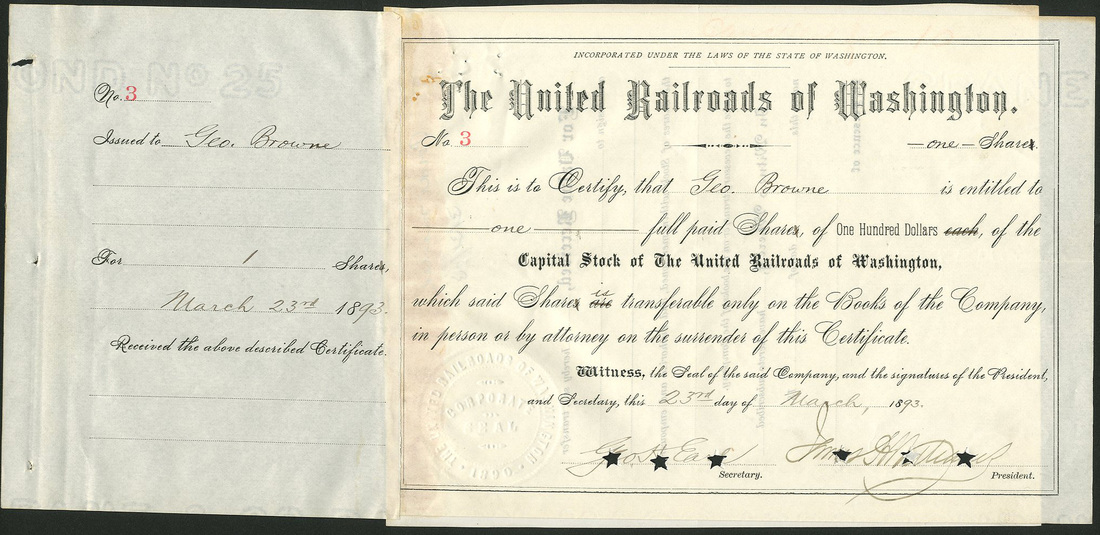 No. 3
Issued to Geo. Browne
For 1 Shares,
March 23rd 1893.
Received the above described Certificate.
INCORPORATED UNDER THE LAWS OF THE STATE OF WASHINGTON.
The United Railroads of Washington.
No. 3 —one— Shares.
This is to Certify, that Geo. Browne is entitled to
one full paid Shares, of One Hundred Dollars each, of the
Capital Stock of The United Railroads of Washington,
which said Shares is are transferable only on the Books of the Company,
in person or by attorney on the surrender of this Certificate.
Witness, the Seal of the said Company, and the signatures of the President,
and Secretary, this 23rd day of March, 1893.
Secretary. President.
BOND No 25